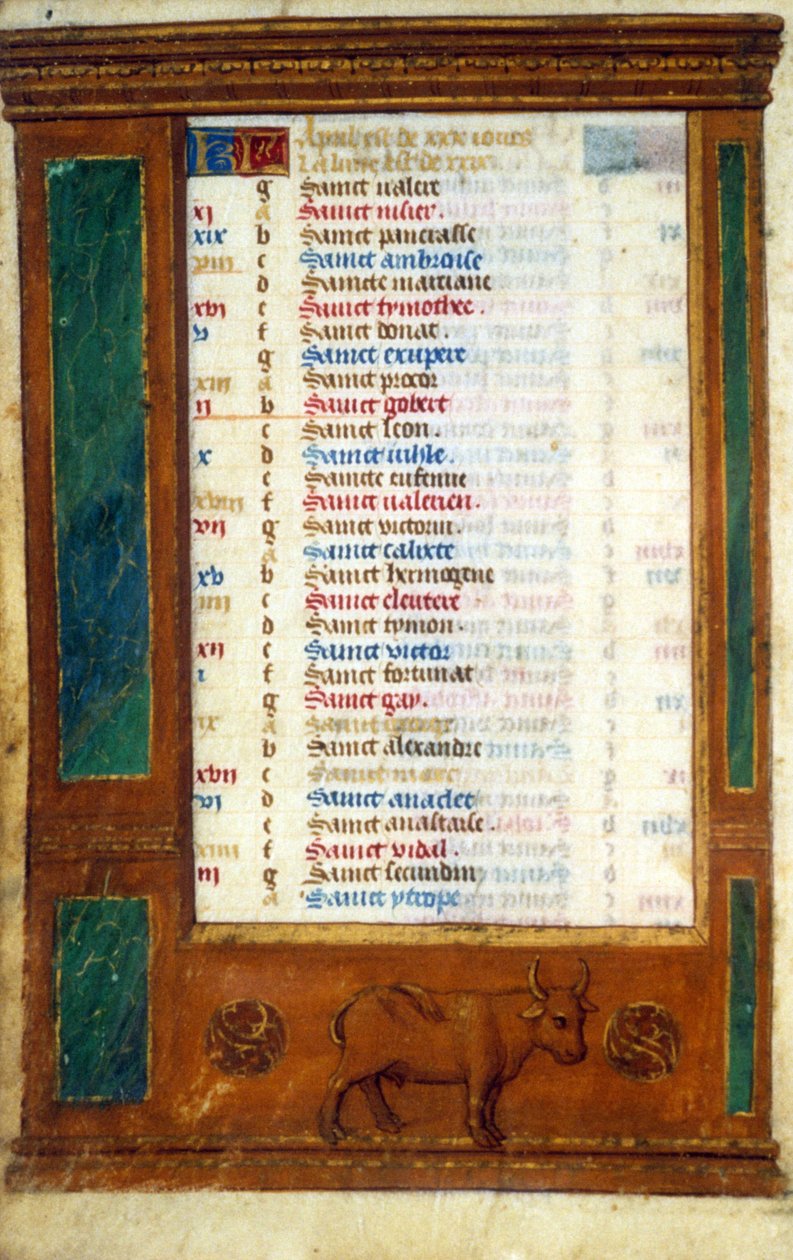 KL Apuril est de xxx iours
La lune est de xxix.
g Sainct ualere
xj a Sainct nisier.
xix b Sainct pancrasse
viii c Sainct ambroise
d Saincte marciane
xvj e Sainct tymothee.
v f Sainct donat.
g Sainct exupere
xiii a Sainct procor
ij b Sainct gobert
c Sainct leon.
x d Sainct
e Saincte eufenne
xviii f Sainct ualerien.
vij g Sainct victorin.
a Sainct calixte
xv b Sainct hermogene
iiii c Sainct eleutere
d Sainct tymon.
xij e Sainct victor
i f Sainct fortunat
g Sainct gay.
ix a Sainct
b Sainct alexandre
xvij c Sainct marc
vj d Sainct anaclet
e Sainct anastaise.
xiiii f Sainct vidal.
iij g Sainct secundin
a Sainct ytrope